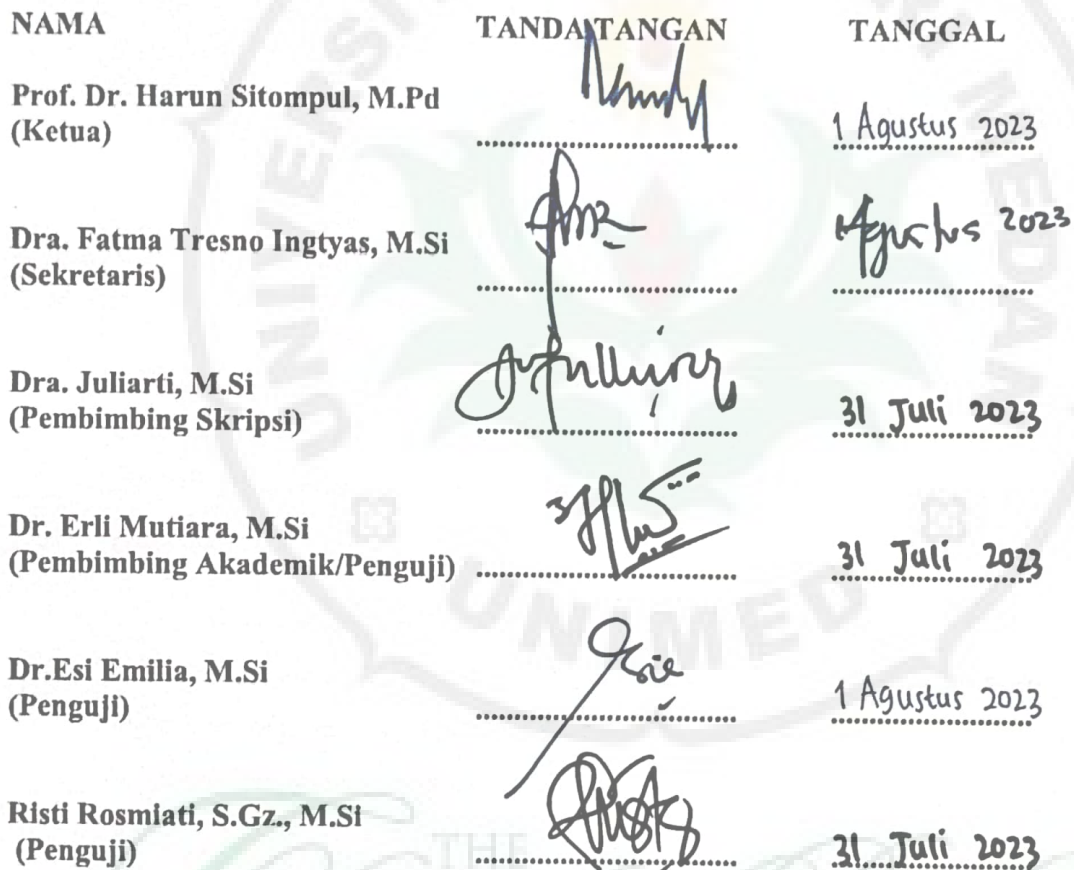 NAMA TANDA TANGAN TANGGAL
Prof. Dr. Harun Sitompul, M.Pd
(Ketua) 1 Agustus 2023
Dra. Fatma Tresno Ingtyas, M.Si Agustus 2023
(Sekretaris)
Dra. Juliarti, M.Si
(Pembimbing Skripsi) 31 Juli 2023
Dr. Erli Mutiara, M.Si
(Pembimbing Akademik/Penguji) 31 Juli 2023
Dr.Esi Emilia, M.Si
(Penguji) 1 Agustus 2023
Risti Rosmiati, S.Gz., M.Si
(Penguji) 31 Juli 2023
UNIMED
THE